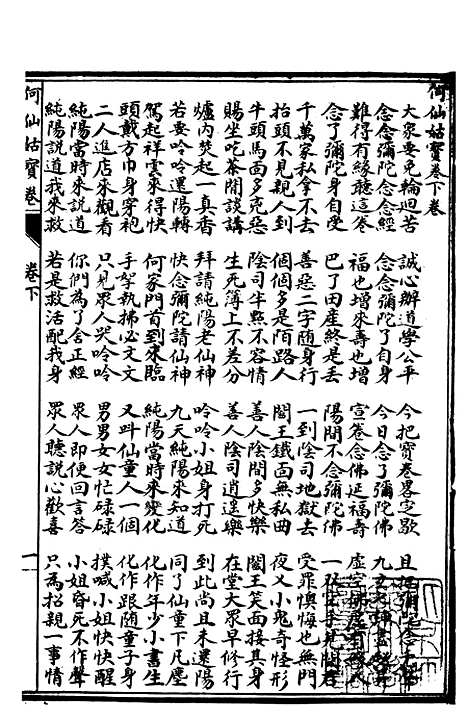 何仙姑寶卷下卷
大衆要免輪迴苦 誠心辦道學公平 今把寶卷畧定歇 且把彌陀念千聲
念念彌陀念念經 念念彌陀了自身 今日念了彌陀佛 九玄七
難得有緣聽這卷 福也增來壽也增 宣卷念佛延福壽 虛空
念了彌陀身自受 巴了田產終是丟 陽間不念彌陀佛 一
千萬家私拿不去 善惡二字隨身行 一到陰司地獄去 受罪懊悔也無門
抬頭不見親人到 個個多是陌路人 閻王鐵面無私曲 夜乂小鬼奇怪形
牛頭馬面多克惡 陰司半點不容情 善人陰間多快樂 閻王笑面接其身
賜坐吃茶閒談講 生死簿上不差分 善人陰司逍遥樂 在堂大衆早修行
爐內焚起一真香 拜請純陽老仙神 呤呤小姐身打死 到此尚且未還陽
若要呤呤還陽轉 快念彌陀請仙神 九天純陽來知道 同了仙童下凡塵
駕起祥雲來得快 何家門首到來臨 純陽當時來變化 化作年少小書生
頭戴方巾身穿袍 手拏執拂必文文 又呌仙童人一個 化作跟隨童子身
二人進店來觀看 只見衆人哭呤呤 男男女女忙碌碌 撲喊小姐快快醒
純陽當時來說道 你們為了舍正經 衆人即便回言答 小姐昏死不作聲
純陽說道我來救 若是救活配我身 衆人聽說心歡喜 只為招親一事情
何仙姑寶卷 卷下 一